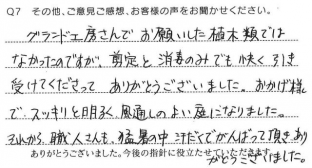 Q7 その他、ご意見ご感想、お客様の声をお聞かせください。
グランド工房さんで お願いした植木類では
なかったのですが、剪定と 消毒のみでも 快く引き
受けてくださって ありがとうございました。おかげ様
で、スッキリと明るく、風通しのよい庭になりました。
それから、職人さんも、猛暑の中 汗だくでがんばって頂きあり
がとうございました。
ありがとうございました。今後の指針に役立たせていただきます。